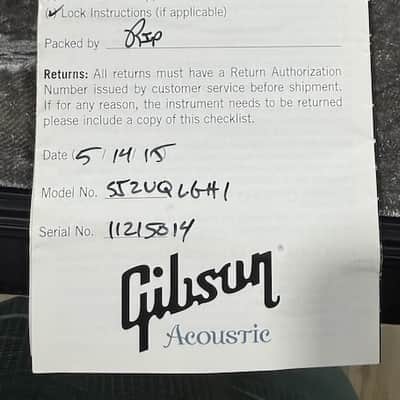 (✓) Lock Instructions (if applicable)
Packed by RIP
Returns: All returns must have a Return Authorization
Number issued by customer service before shipment.
If for any reason, the instrument needs to be returned
please include a copy of this checklist.
Date 5/14/15
Model No. SJ2UQLGH1
Serial No. 11215014
Gibson®
Acoustic